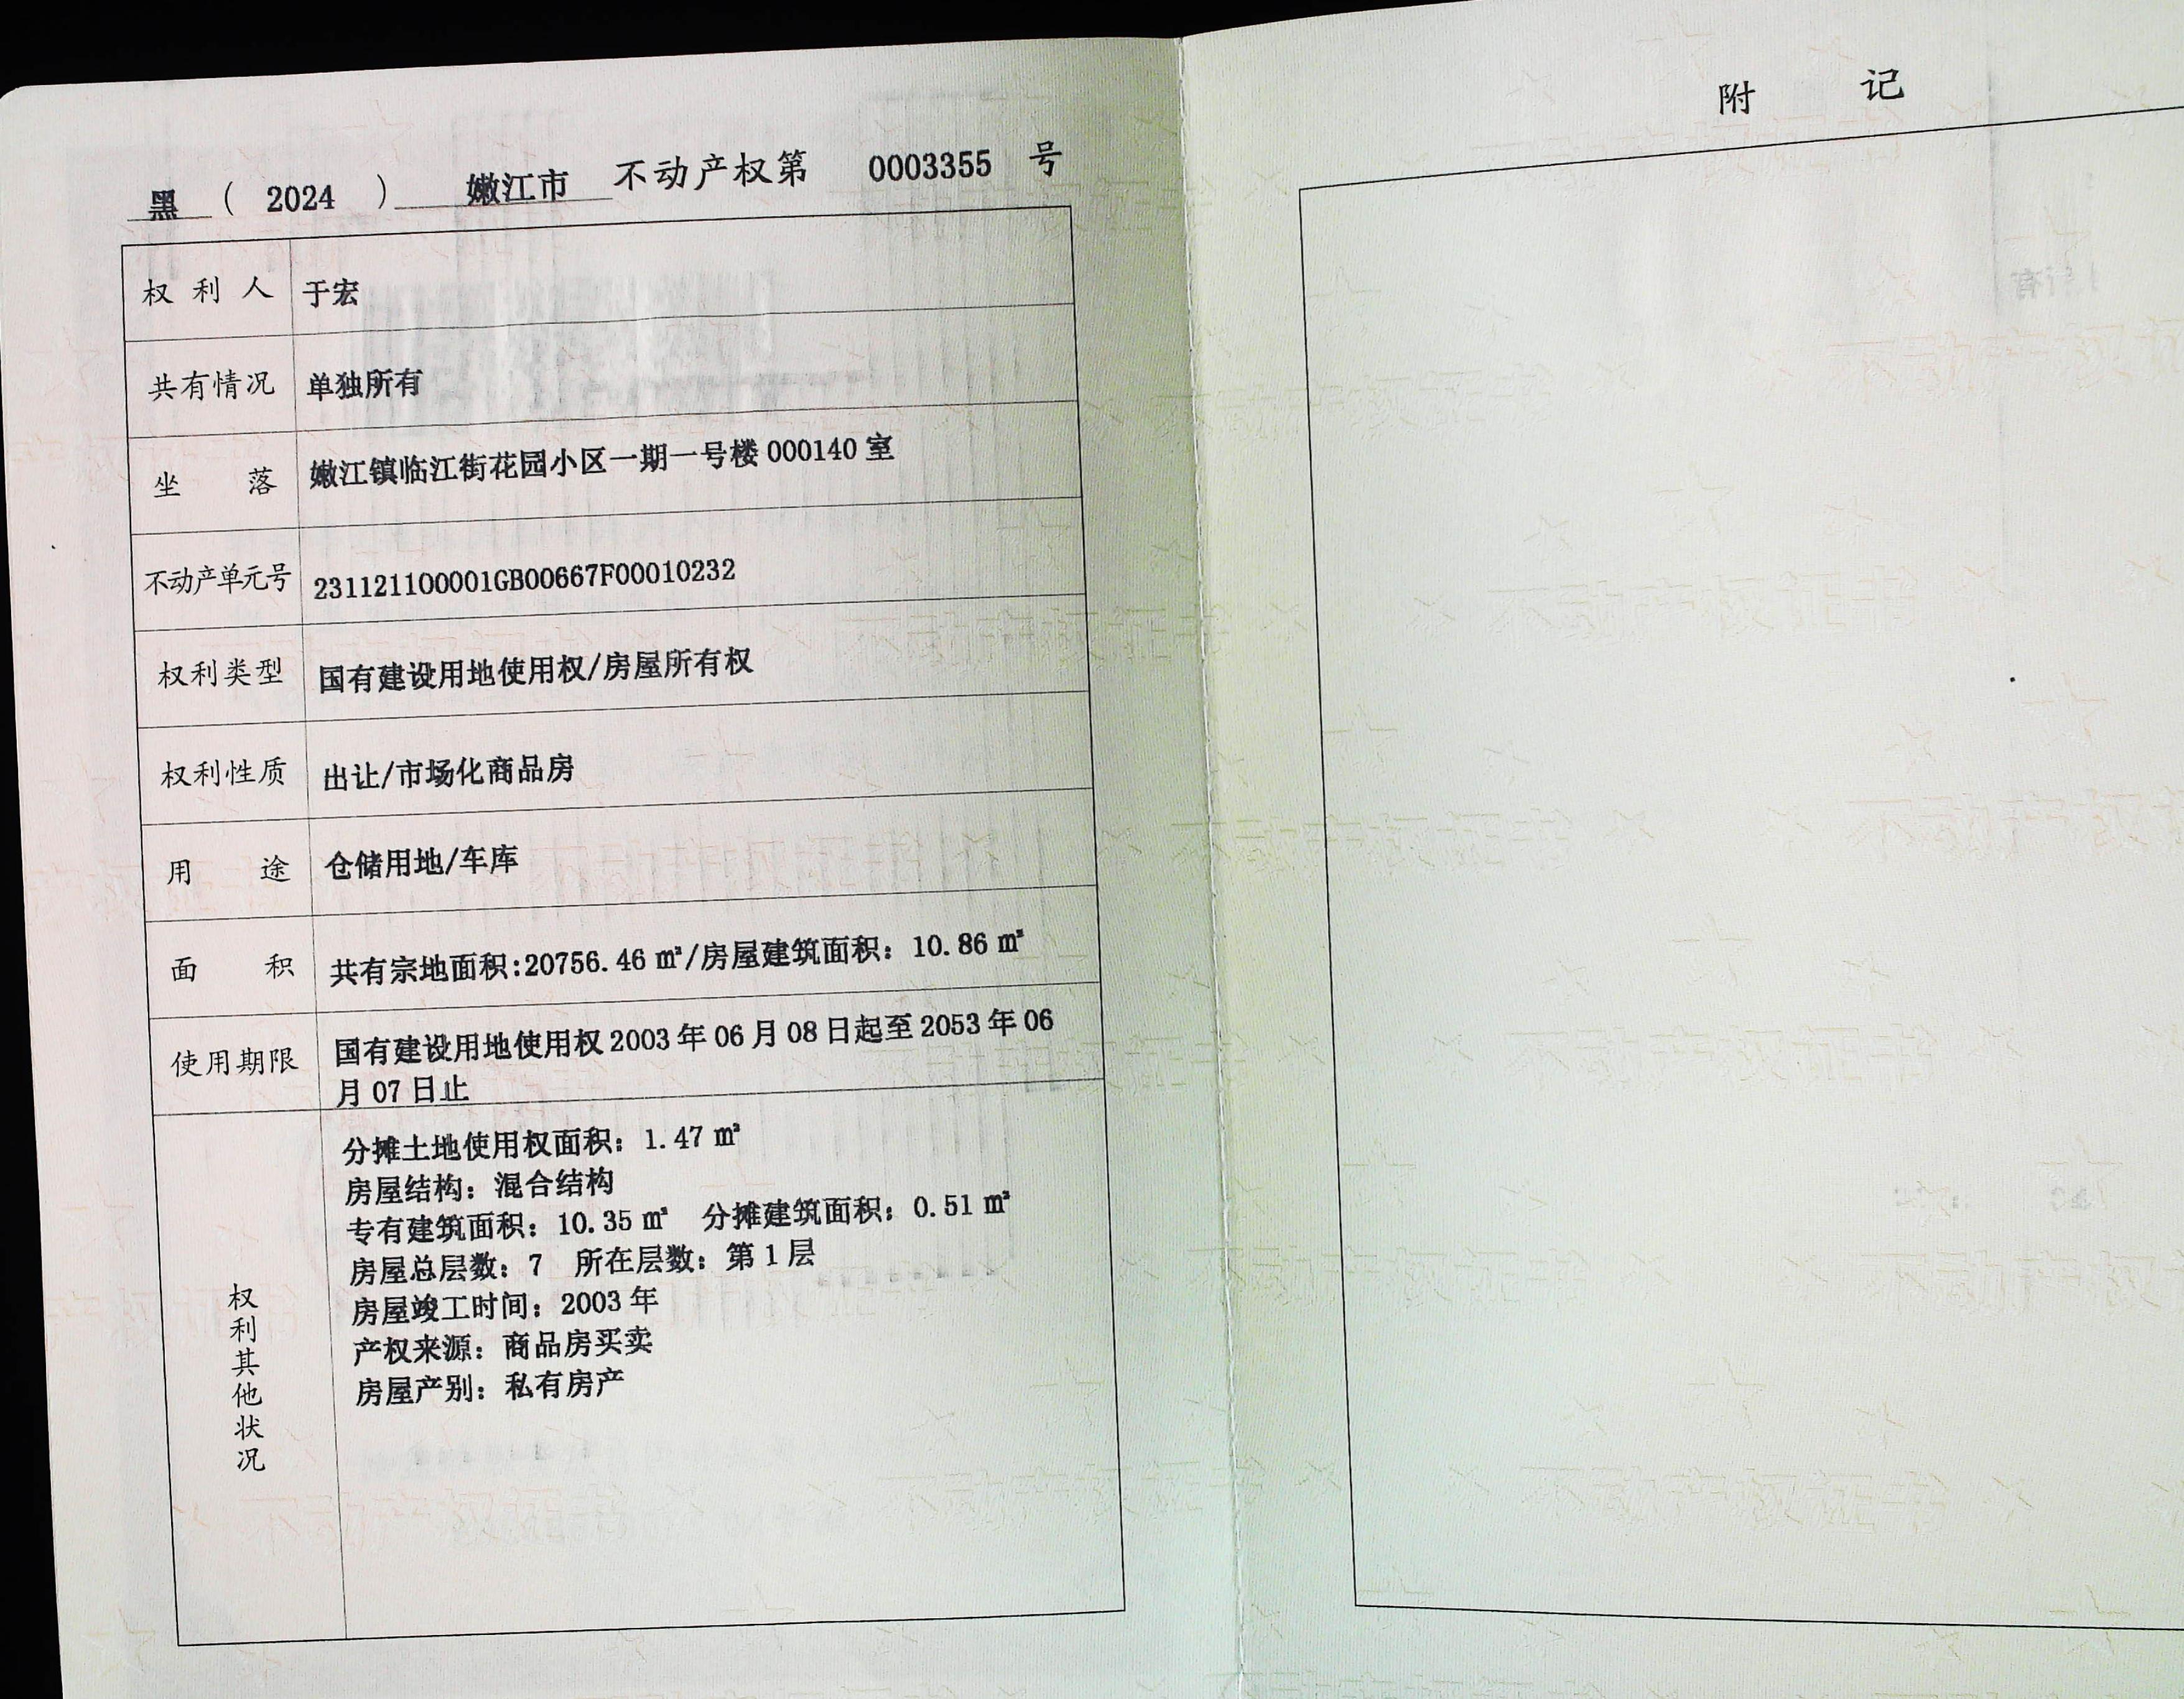 黑 ( 2024 ) 嫩江市 不动产权第 0003355 号
权利人 于宏
共有情况 单独所有
坐落 嫩江镇临江街花园小区一期一号楼000140室
不动产单元号 231121100001GB00667F00010232
权利类型 国有建设用地使用权/房屋所有权
权利性质 出让/市场化商品房
用途 仓储用地/车库
面积 共有宗地面积:20756.46㎡/房屋建筑面积：10.86㎡
使用期限 国有建设用地使用权2003年06月08日起至2053年06
月07日止
权利其他状况
分摊土地使用权面积：1.47㎡
房屋结构：混合结构
专有建筑面积：10.35㎡ 分摊建筑面积：0.51㎡
房屋总层数：7 所在层数：第1层
房屋竣工时间：2003年
产权来源：商品房买卖
房屋产别：私有房产
附记